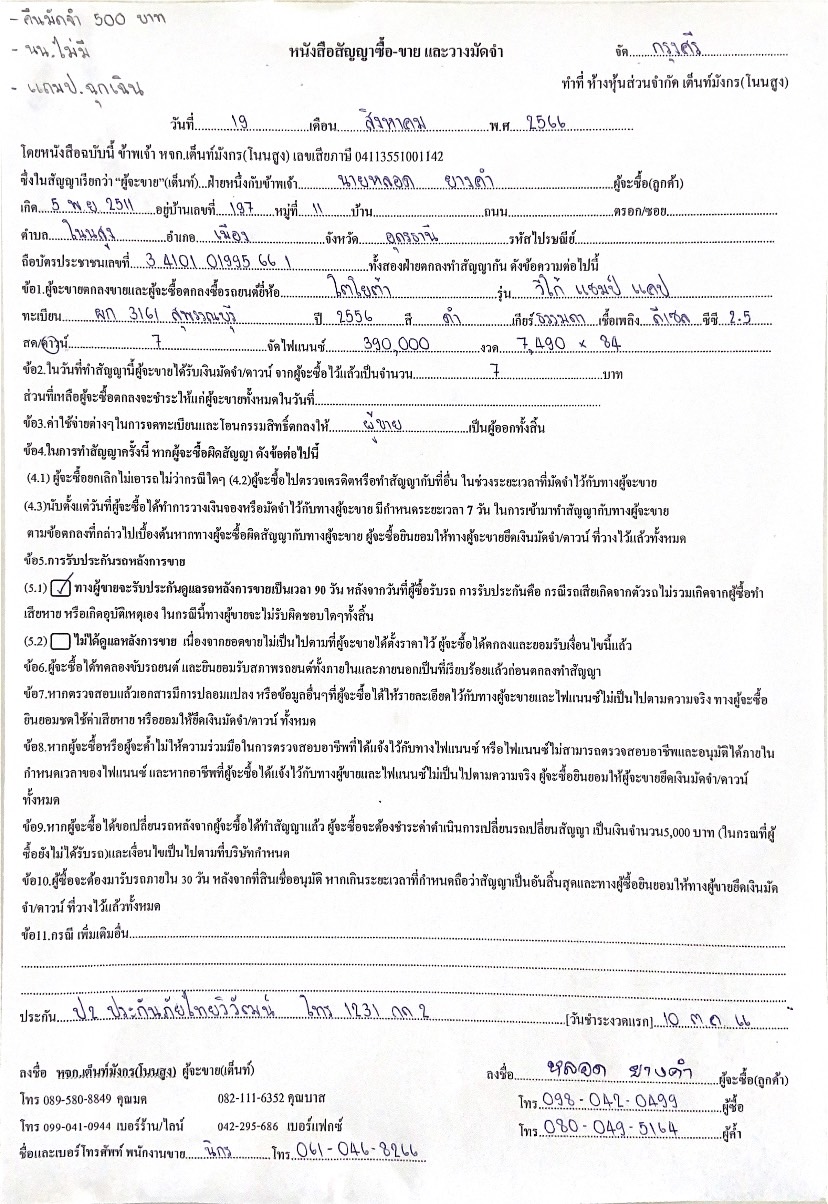 - คืนมัดจำ 500 บาท
- นน.ไม่มี
- แถมป.ฉุกเฉิน
หนังสือสัญญาซื้อ-ขาย และวางมัดจำ
จัด กรุงศรี
ทำที่ ห้างหุ้นส่วนจำกัด เต็นท์มังกร(โนนสูง)
วันที่ 19 เดือน สิงหาคม พ.ศ 2566
โดยหนังสือฉบับนี้ ข้าพเจ้า หจก.เต็นท์มังกร(โนนสูง) เลขเสียภาษี 04113551001142
ซึ่งในสัญญาเรียกว่า "ผู้จะขาย"(เต็นท์)...ฝ่ายหนึ่งกับข้าพเจ้า นายหลอด ยางคำ ผู้จะซื้อ(ลูกค้า)
เกิด 5 พ.ย 2511 อยู่บ้านเลขที่ 197 หมู่ที่ 11 บ้าน ถนน ตรอก/ซอย
ตำบล โนนสูง อำเภอ เมือง จังหวัด อุดรธานี รหัสไปรษณีย์
ถือบัตรประชาชนเลขที่ 3 4101 01995 66 1 ทั้งสองฝ่ายตกลงทำสัญญากัน ดังข้อความต่อไปนี้
ข้อ1.ผู้จะขายตกลงขายและผู้จะซื้อตกลงซื้อรถยนต์ยี่ห้อ โตโยต้า รุ่น วีโก้ แชมป์ แคป
ทะเบียน ผก 3161 สุพรรณบุรี ปี 2556 สี ดำ เกียร์ ธรรมดา เชื้อเพลิง ดีเซล ซีซี 2.5
สด/ดาวน์ 7 จัดไฟแนนซ์ 390,000 งวด 7,490 x 84
ข้อ2.ในวันที่ทำสัญญานี้ผู้จะขายได้รับเงินมัดจำ/ดาวน์ จากผู้จะซื้อไว้แล้วเป็นจำนวน 7 บาท
ส่วนที่เหลือผู้จะซื้อตกลงจะชำระให้แก่ผู้จะขายทั้งหมดในวันที่
ข้อ3.ค่าใช้จ่ายต่างๆในการจดทะเบียนและโอนกรรมสิทธิ์ตกลงให้ ผู้ขาย เป็นผู้ออกทั้งสิ้น
ข้อ4.ในการทำสัญญาครั้งนี้ หากผู้จะซื้อผิดสัญญา ดังข้อต่อไปนี้
(4.1) ผู้จะซื้อยกเลิกไม่เอารถไม่ว่ากรณีใดๆ (4.2)ผู้จะซื้อไปตรวจเครดิตหรือทำสัญญากับที่อื่น ในช่วงระยะเวลาที่มัดจำไว้กับทางผู้จะขาย
(4.3)นับตั้งแต่วันที่ผู้จะซื้อได้ทำการวางเงินจองหรือมัดจำไว้กับทางผู้จะขาย มีกำหนดระยะเวลา 7 วัน ในการเข้ามาทำสัญญากับทางผู้จะขาย
ตามข้อตกลงที่กล่าวไปเบื้องต้นหากทางผู้จะซื้อผิดสัญญากับทางผู้จะขาย ผู้จะซื้อยินยอมให้ทางผู้จะขายยึดเงินมัดจำ/ดาวน์ ที่วางไว้แล้วทั้งหมด
ข้อ5.การรับประกันรถหลังการขาย
(5.1) ☑ ทางผู้ขายจะรับประกันดูแลรถหลังการขายเป็นเวลา 90 วัน หลังจากวันที่ผู้ซื้อรับรถ การรับประกันคือ กรณีรถเสียเกิดจากตัวรถไม่รวมเกิดจากผู้ซื้อทำ
เสียหาย หรือเกิดอุบัติเหตุเอง ในกรณีนี้ทางผู้ขายจะไม่รับผิดชอบใดๆทั้งสิ้น
(5.2) ☐ ไม่ได้ดูแลหลังการขาย เนื่องจากยอดขายไม่เป็นไปตามที่ผู้จะขายได้ตั้งราคาไว้ ผู้จะซื้อได้ตกลงและยอมรับเงื่อนไขนี้แล้ว
ข้อ6.ผู้จะซื้อได้ทดลองขับรถยนต์ และยินยอมรับสภาพรถยนต์ทั้งภายในและภายนอกเป็นที่เรียบร้อยแล้วก่อนตกลงทำสัญญา
ข้อ7.หากตรวจสอบแล้วเอกสารมีการปลอมแปลง หรือข้อมูลอื่นๆที่ผู้จะซื้อได้ให้รายละเอียดไว้กับทางผู้จะขายและไฟแนนซ์ไม่เป็นไปตามความจริง ทางผู้จะซื้อ
ยินยอมชดใช้ค่าเสียหาย หรือยอมให้ยึดเงินมัดจำ/ดาวน์ ทั้งหมด
ข้อ8.หากผู้จะซื้อหรือผู้จะค้ำไม่ให้ความร่วมมือในการตรวจสอบอาชีพที่ได้แจ้งไว้กับทางไฟแนนซ์ หรือไฟแนนซ์ไม่สามารถตรวจสอบอาชีพและอนุมัติได้ภายใน
กำหนดเวลาของไฟแนนซ์ และหากอาชีพที่ผู้จะซื้อได้แจ้งไว้กับทางผู้ขายและไฟแนนซ์ไม่เป็นไปตามความจริง ผู้จะซื้อยินยอมให้ผู้จะขายยึดเงินมัดจำ/ดาวน์
ทั้งหมด
ข้อ9.หากผู้จะซื้อได้ขอเปลี่ยนรถหลังจากผู้จะซื้อได้ทำสัญญาแล้ว ผู้จะซื้อจะต้องชำระค่าดำเนินการเปลี่ยนรถเปลี่ยนสัญญา เป็นเงินจำนวน5,000 บาท (ในกรณีที่ผู้
ซื้อยังไม่ได้รับรถ)และเงื่อนไขเป็นไปตามที่บริษัทกำหนด
ข้อ10.ผู้ซื้อจะต้องมารับรถภายใน 30 วัน หลังจากที่สินเชื่ออนุมัติ หากเกินระยะเวลาที่กำหนดถือว่าสัญญาเป็นอันสิ้นสุดและทางผู้ซื้อยินยอมให้ทางผู้ขายยึดเงินมัด
จำ/ดาวน์ ที่วางไว้แล้วทั้งหมด
ข้อ11.กรณี เพิ่มเติมอื่น
ประกัน ป2 ประกันภัยไทยวิวัฒน์ โทร 1231 กด 2 [วันชำระงวดแรก] 10 ต.ค 66
ลงชื่อ หจก.เต็นท์มังกร(โนนสูง) ผู้จะขาย(เต็นท์)
ลงชื่อ หลอด ยางคำ ผู้จะซื้อ(ลูกค้า)
โทร 089-580-8849 คุณมด 082-111-6352 คุณบาส
โทร 098-042-0499 ผู้ซื้อ
โทร 099-041-0944 เบอร์ร้าน/ไลน์ 042-295-686 เบอร์แฟกซ์
โทร 080-049-5164 ผู้ค้ำ
ชื่อและเบอร์โทรศัพท์ พนักงานขาย นิกร โทร 061-046-8266